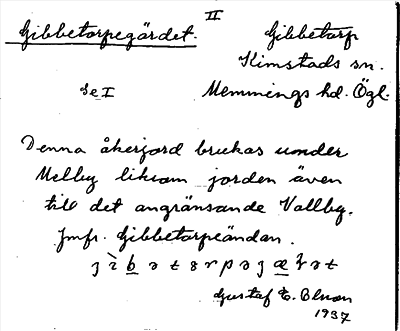 II
Gibbetorpegärdet. Gibbetorp
Kimstads sn.
Se I Memmings hd. Ögl.
Denna åkerjord brukas under
Melby liksom jorden även
till det angränsande Vallby.
Jmfr. Gibbetorpeändan.
Gustaf E.
1937